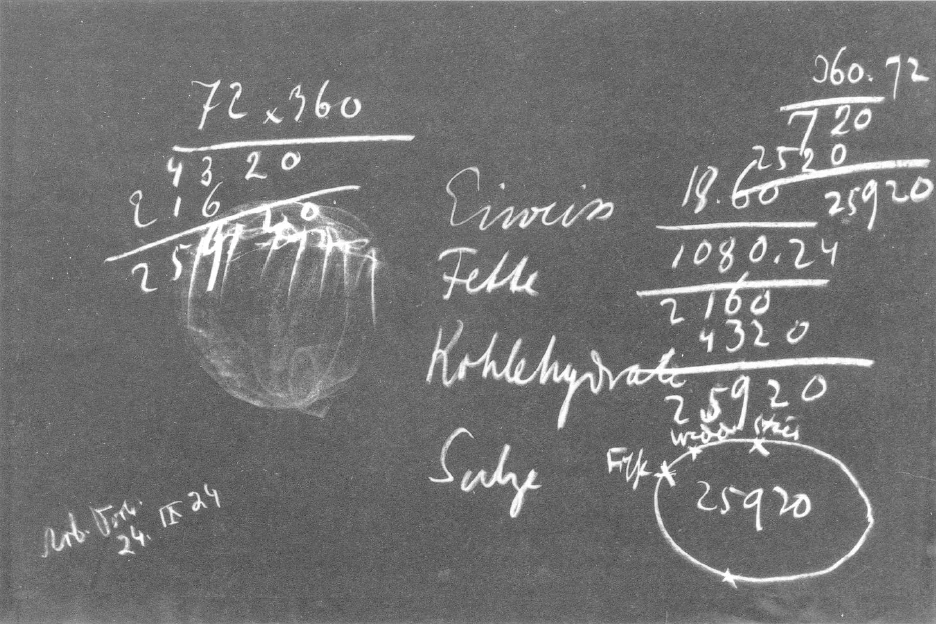 72 x 360
4320
216
259 20
360.72
720
2520
25920
Eiweiss
Fette
Kohlehydrate
Salze
18.60
1080.24
2160
4320
25920
Widder Stier
Fische
25920
Arb. Vortr.
24. IX 24